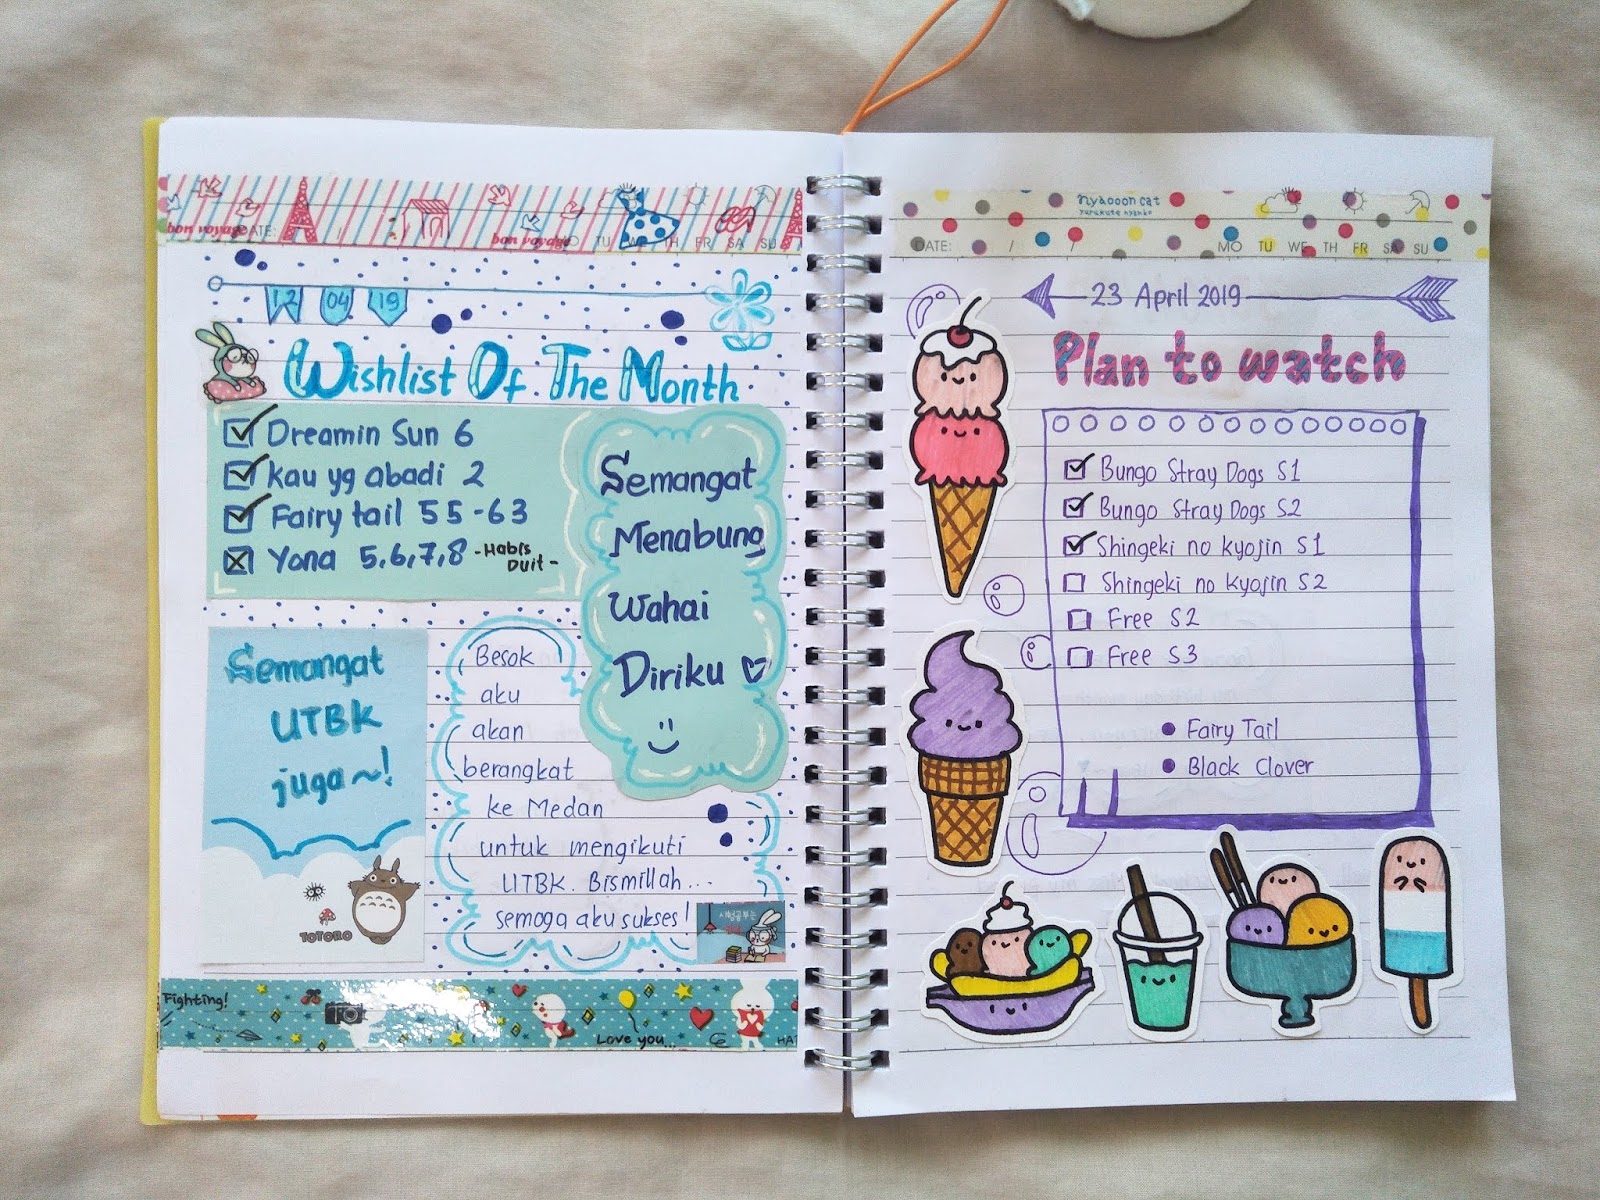 bon voyage
DATE:
bon voyage
TU WE TH FR SA SU
12 04 19
Wishlist Of The Month
Dreamin Sun 6
Kau yg abadi 2
Fairy tail 55-63
Yona 5,6,7,8 -Habis
Duit-
Semangat
Menabung
Wahai
Diriku
Semangat
UTBK
juga~!
TOTORO
Besok
aku
akan
berangkat
ke Medan
untuk mengikuti
UTBK. Bismillah...
semoga aku sukses!
시험공부는
Fighting!
Love you...
HA
nyaooon cat
yurukute nyanko
DATE: / /
MO TU WE TH FR SA SU
23 April 2019
Plan to watch
Bungo Stray Dogs S1
Bungo Stray Dogs S2
Shingeki no kyojin S1
Shingeki no kyojin S2
Free S2
Free S3
• Fairy Tail
• Black Clover